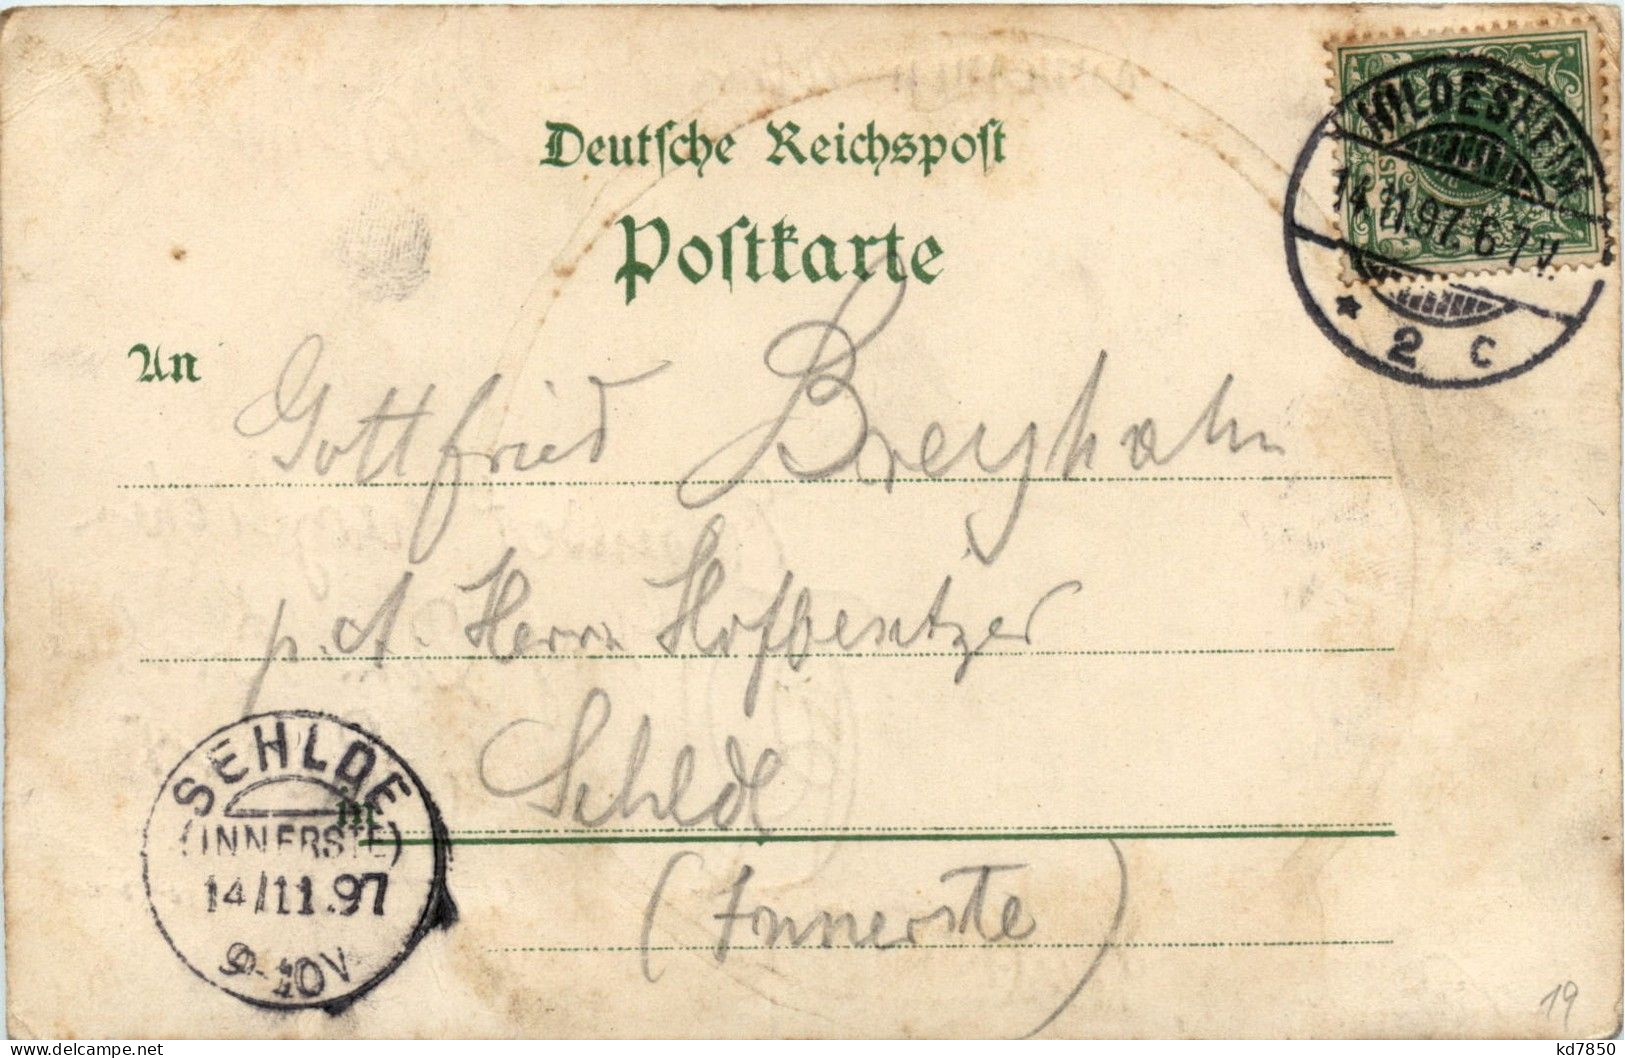 Deutsche Reichspost
Postkarte
HILDESHEIM
14.11.97. 6-7V.
* 2 c
An
Gottfried Breyhahn
p. A. Herrn Hofbesitzer
Sehlde
(Innerste)
SEHLDE
(INNERSTE)
14/11.97
9-10V
in
19
www.delcampe.net
kd7850